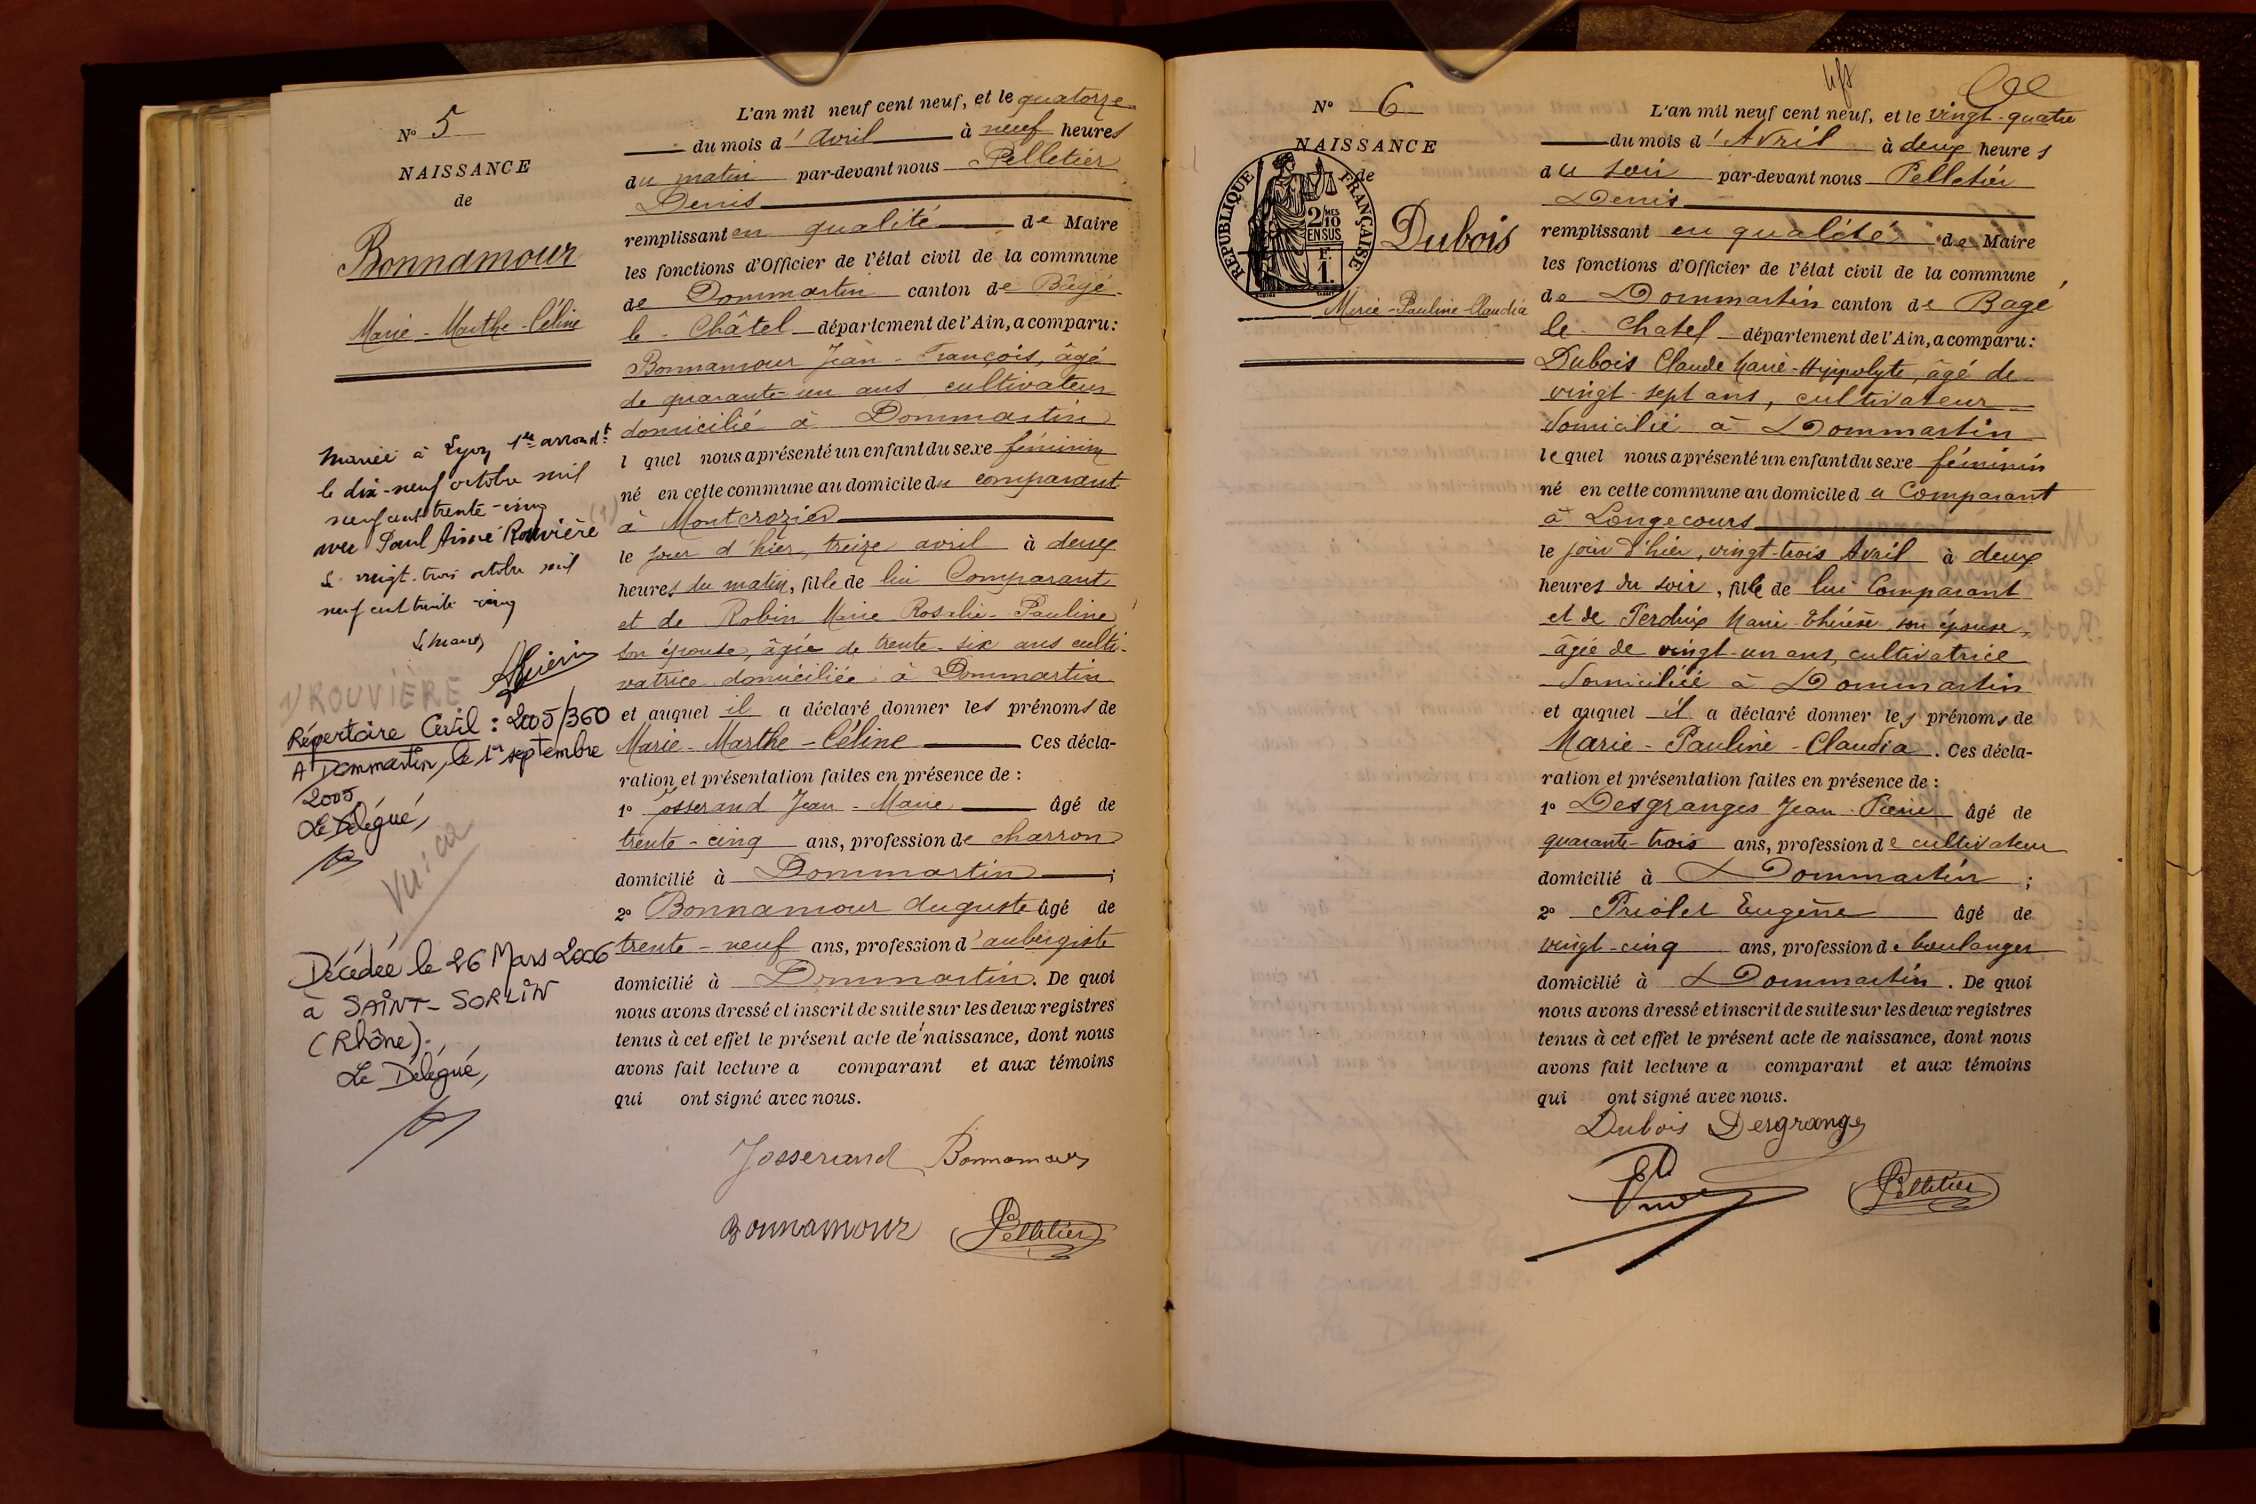 N° 5
NAISSANCE
de
Bonnamour
Marie - Marthe - Céline
Mariée à Lyon 1er arrondt
le dix-neuf octobre mil
neuf cent trente-cinq
avec Paul Aimé Rouvière (1)
Le vingt-trois octobre mil
neuf cent trente-cinq
Le Maire
1/ ROUVIÈRE
Répertoire Civil : 2005/360
A Dommartin, le 1er septembre
2005
Le Délégué,
Décédée le 26 Mars 2006
à SAINT-SORLIN
(Rhône).
Le Délégué,
L'an mil neuf cent neuf, et le quatorze
du mois d'Avril à neuf heures
du matin par-devant nous Pelletier
Denis
remplissant en qualité de Maire
les fonctions d'Officier de l'état civil de la commune
de Dommartin canton de Bâgé-
le-Châtel département de l'Ain, a comparu :
Bonnamour Jean-François, âgé
de quarante-un ans cultivateur
domicilié à Dommartin
l quel nous a présenté un enfant du sexe féminin
né en cette commune au domicile du comparant
à Montcrozier
le jour d'hier, treize avril à deux
heures du matin, fille de lui Comparant
et de Robin Marie-Rosalie-Pauline
son épouse, âgée de trente-six ans culti-
vatrice domiciliée à Dommartin
et auquel il a déclaré donner les prénoms de
Marie-Marthe-Céline Ces décla-
ration et présentation faites en présence de :
1° Josserand Jean-Marie âgé de
trente-cinq ans, profession de charron
domicilié à Dommartin ;
2° Bonnamour Auguste âgé de
trente-neuf ans, profession d'aubergiste
domicilié à Dommartin. De quoi
nous avons dressé et inscrit de suite sur les deux registres
tenus à cet effet le présent acte de naissance, dont nous
avons fait lecture a comparant et aux témoins
qui ont signé avec nous.
Josserand Bonnamour
Bonnamour Pelletier
N° 6
NAISSANCE
de
REPUBLIQUE FRANÇAISE
2/10 MES
EN SUS
1 F
Dubois
Marie-Pauline-Claudia
L'an mil neuf cent neuf, et le vingt-quatre
du mois d'Avril à deux heures
du soir par-devant nous Pelletier
Denis
remplissant en qualité de Maire
les fonctions d'Officier de l'état civil de la commune
de Dommartin canton de Bagé
le Chatel département de l'Ain, a comparu :
Dubois Claude Marie-Hyppolyte, âgé de
vingt-sept ans, cultivateur
domicilié à Dommartin
lequel nous a présenté un enfant du sexe féminin
né en cette commune au domicile du Comparant
à Longecours
le jour d'hier, vingt-trois Avril à deux
heures du soir, fille de lui Comparant
et de Perdrix Marie-Thérèse son épouse,
âgée de vingt-un ans, cultivatrice
domiciliée à Dommartin
et auquel il a déclaré donner les prénoms de
Marie-Pauline-Claudia. Ces décla-
ration et présentation faites en présence de :
1° Desgranges Jean-Pierre âgé de
quarante-trois ans, profession de cultivateur
domicilié à Dommartin ;
2° Priolet Eugène âgé de
vingt-cinq ans, profession de boulanger
domicilié à Dommartin. De quoi
nous avons dressé et inscrit de suite sur les deux registres
tenus à cet effet le présent acte de naissance, dont nous
avons fait lecture a comparant et aux témoins
qui ont signé avec nous.
Dubois Desgranges
Pelletier